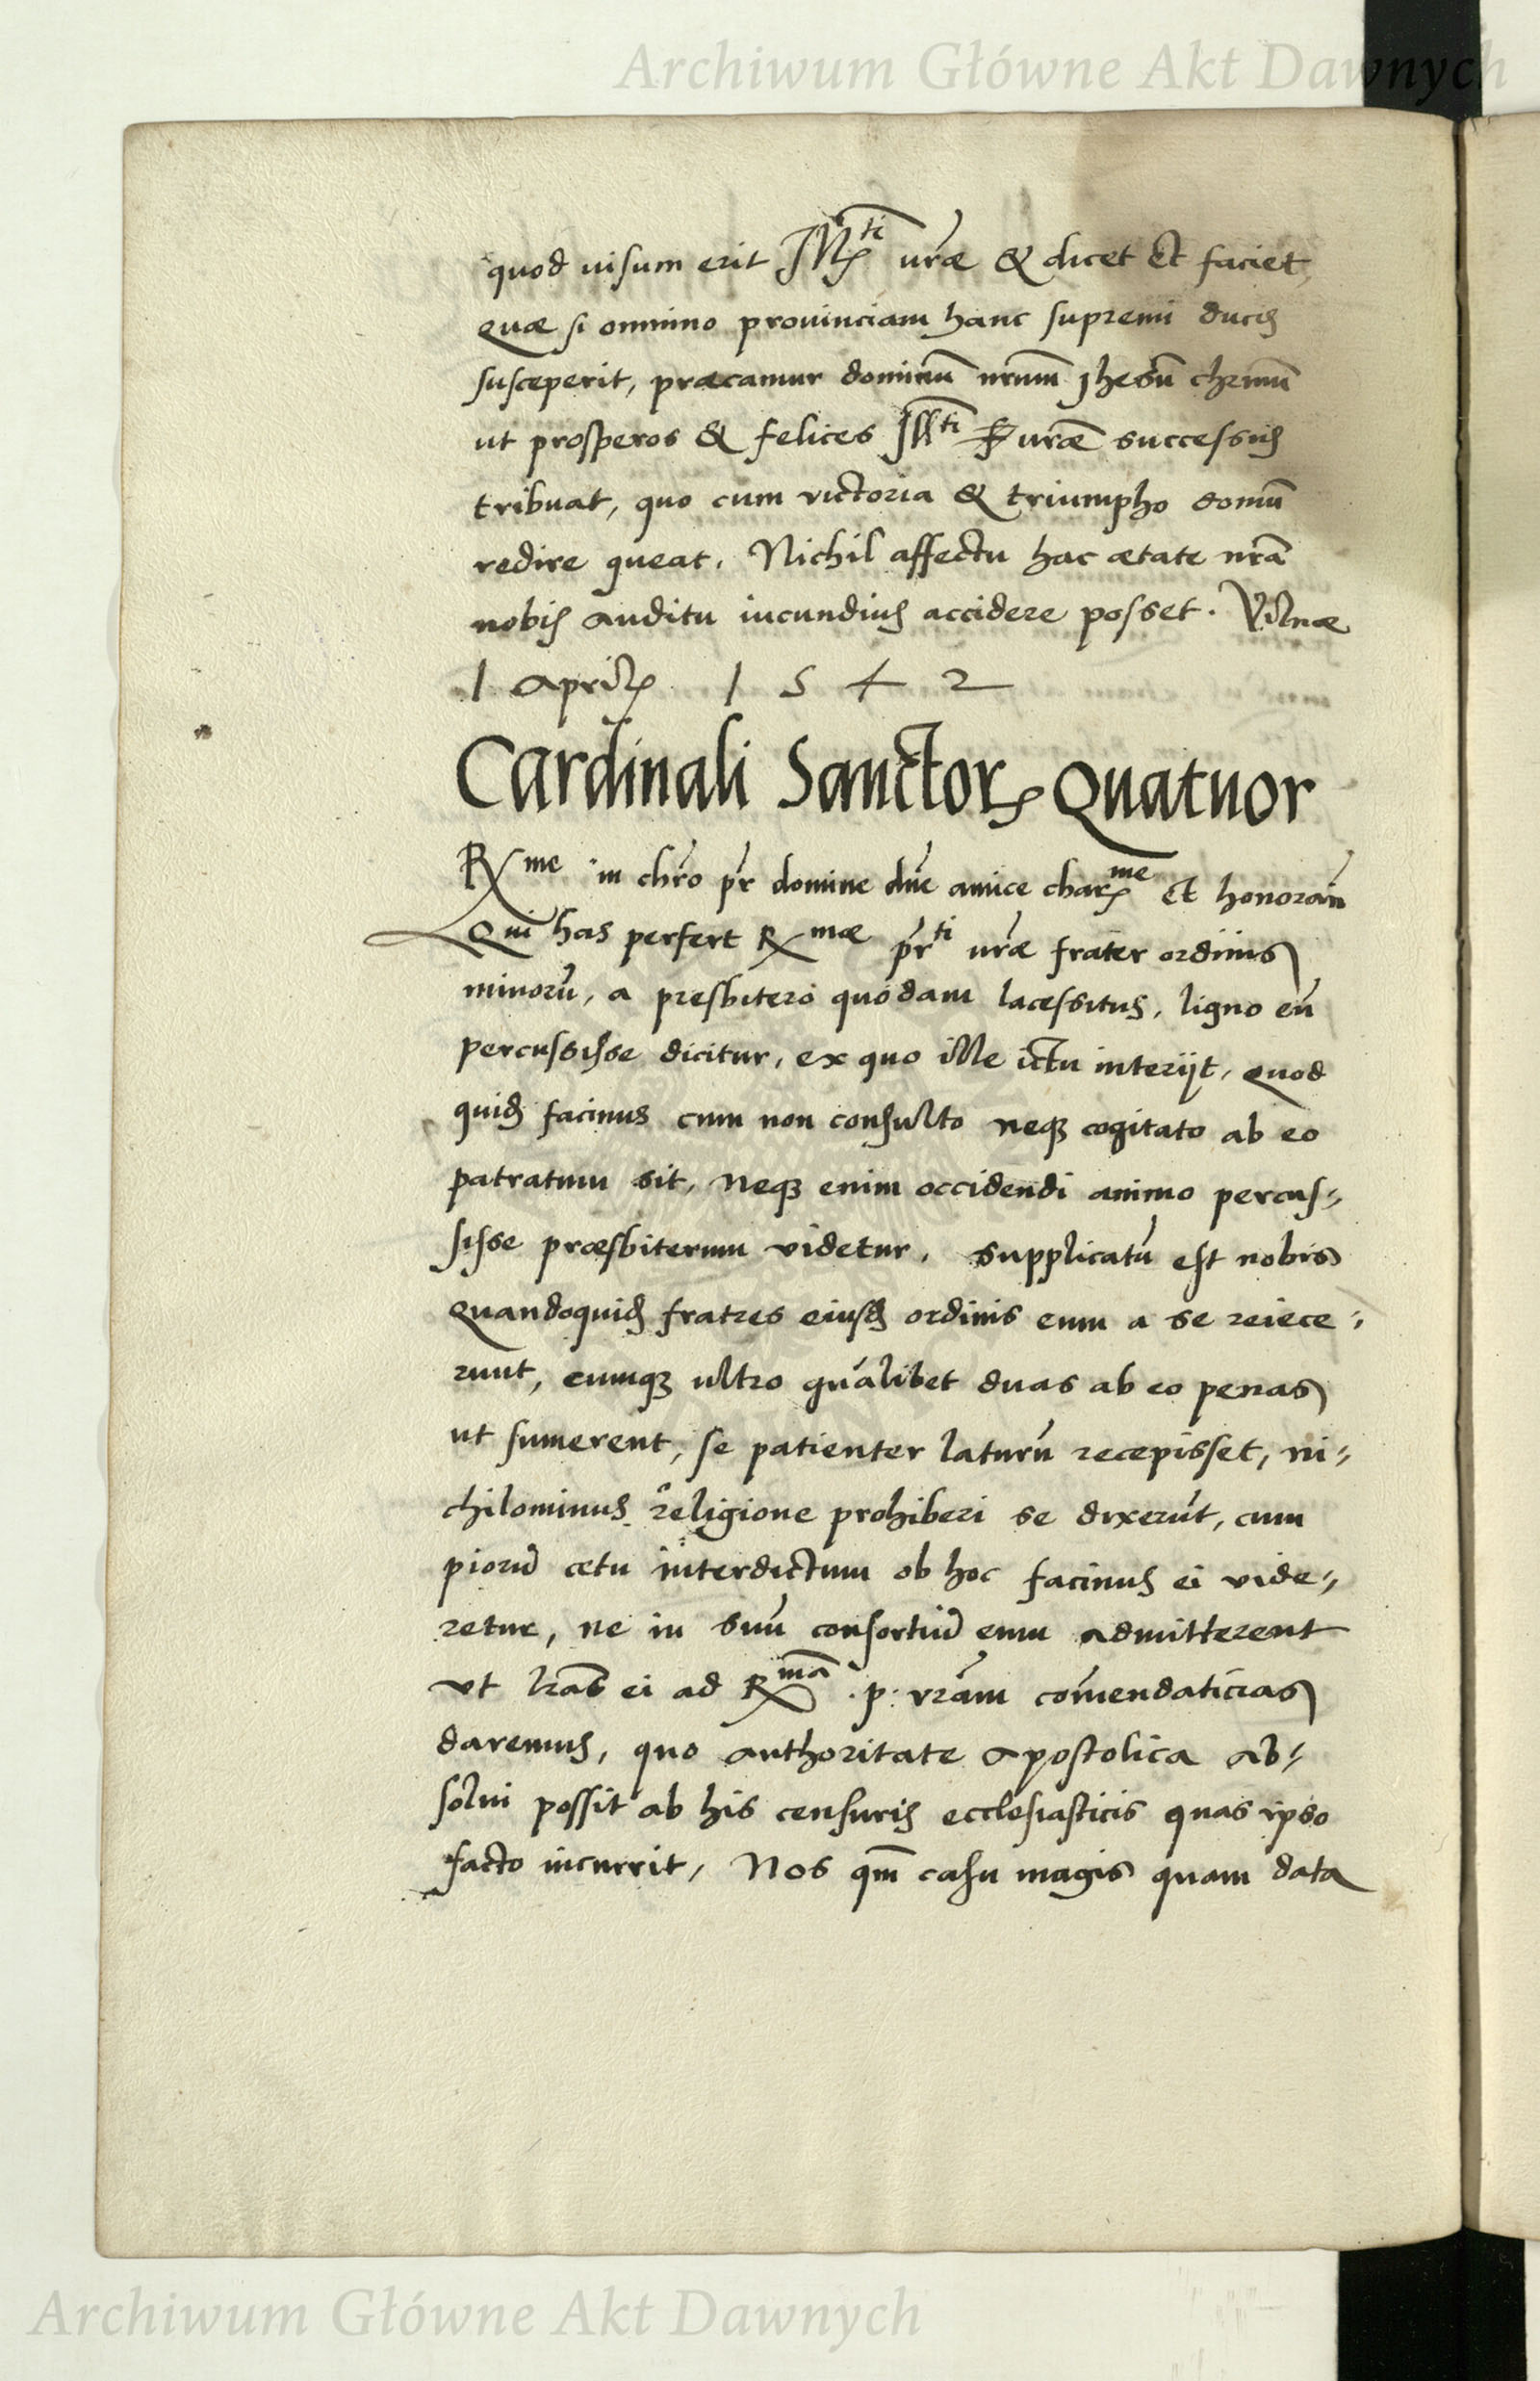 Archiwum Główne Akt Dawnych
quod uisum erit Ill^ti uræ & dicet et faciet,
quæ si omnino prouinciam hanc supremi ducis
susceperit, præcamur dominū nrum Jhesū chrmū
ut prosperos & felices Ill^ti F uræ successus
tribuat, quo cum victoria & triumpho domū
redire queat. Nichil affectu hac ætate nrā
nobis auditu iucundius accidere posset. Vilnæ
1 Aprilis 1 5 4 2
Cardinali Sanctor Quatuor
R^me in chro pr domine dne amice char^me et honoran
Qui has perfert R^mæ pr^ti uræ frater ordinis
minorū, a presbitero quodam lacessitus, ligno eū
percussisse dicitur, ex quo ille ictu interijt, quod
quid facinus cum non consulto neq cogitato ab eo
patratum sit, neq enim occidendi animo percus-
sisse præsbiterum videtur. supplicatū est nobis
quandoquid fratres eiusd ordinis eum a se reiece-
runt, cumq ultro qualibet duas ab eo penas
ut sumerent, se patienter laturū recepisset, ni-
chilominus religione prohiberi se dixerūt, cum
piorū cetu interdictum ob hoc facinus ei vide-
retur, ne in suū consortiū eum admitterent
vt lras ei ad R^ma .p. vram comendaticias
daremus, quo authoritate apostolica ab-
solui possit ab his censuris ecclesiasticis quas ipso
facto incurrit, Nos qm casu magis quam data
Archiwum Główne Akt Dawnych